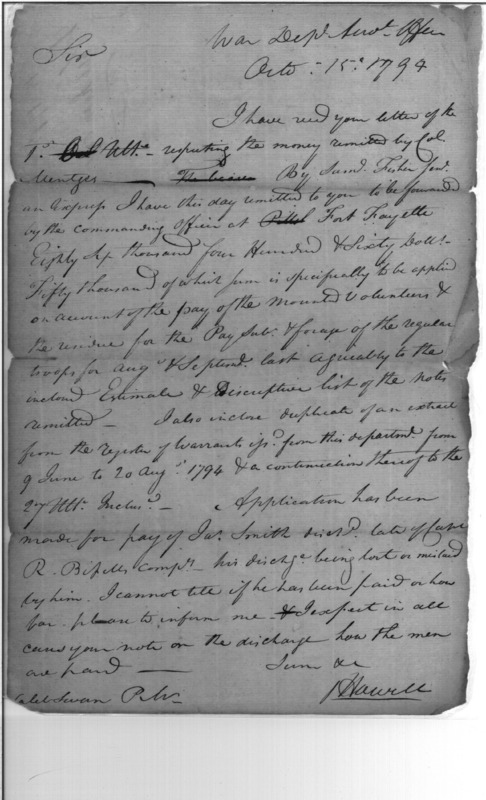 War Dept. Accot. Office
Sir
Octo. 15. 1794
I have recd your letter of the
1st Ulto. respecting the money remitted by Col.
Mentges By Saml. Fisher Jonr.
an Express I have this day remitted to you to be forwarded
by the commanding Officer at Fort Fayette
Eighty Six thousand four Hundred & Sixty Dolls.
Fifty thousand of which sum is specifically to be applied
on account of the pay of the Mounted Volunteers &
the residue for the Pay Subs. & forage of the regular
troops for Augt. & Septemr. last agreeably to the
inclosed Estimate & Discriptive list of the notes
remitted — I also inclose duplicate of an extract
from the register of Warrants issd. from this departmt. from
9 June to 20 Augt. 1794 & a continuation thereof to the
27 Ulto. Inclus. — Application has been
made for pay of Jas. Smith discd. late of Capt
R. Bissells compy. his dischge. being lost or mislaid
by him. I cannot tell if he has been paid or how
far. please to inform me & I expect in all
cases your note on the discharge how the men
are paid — I am &c
Caleb Swan P. Mr.
J Howell